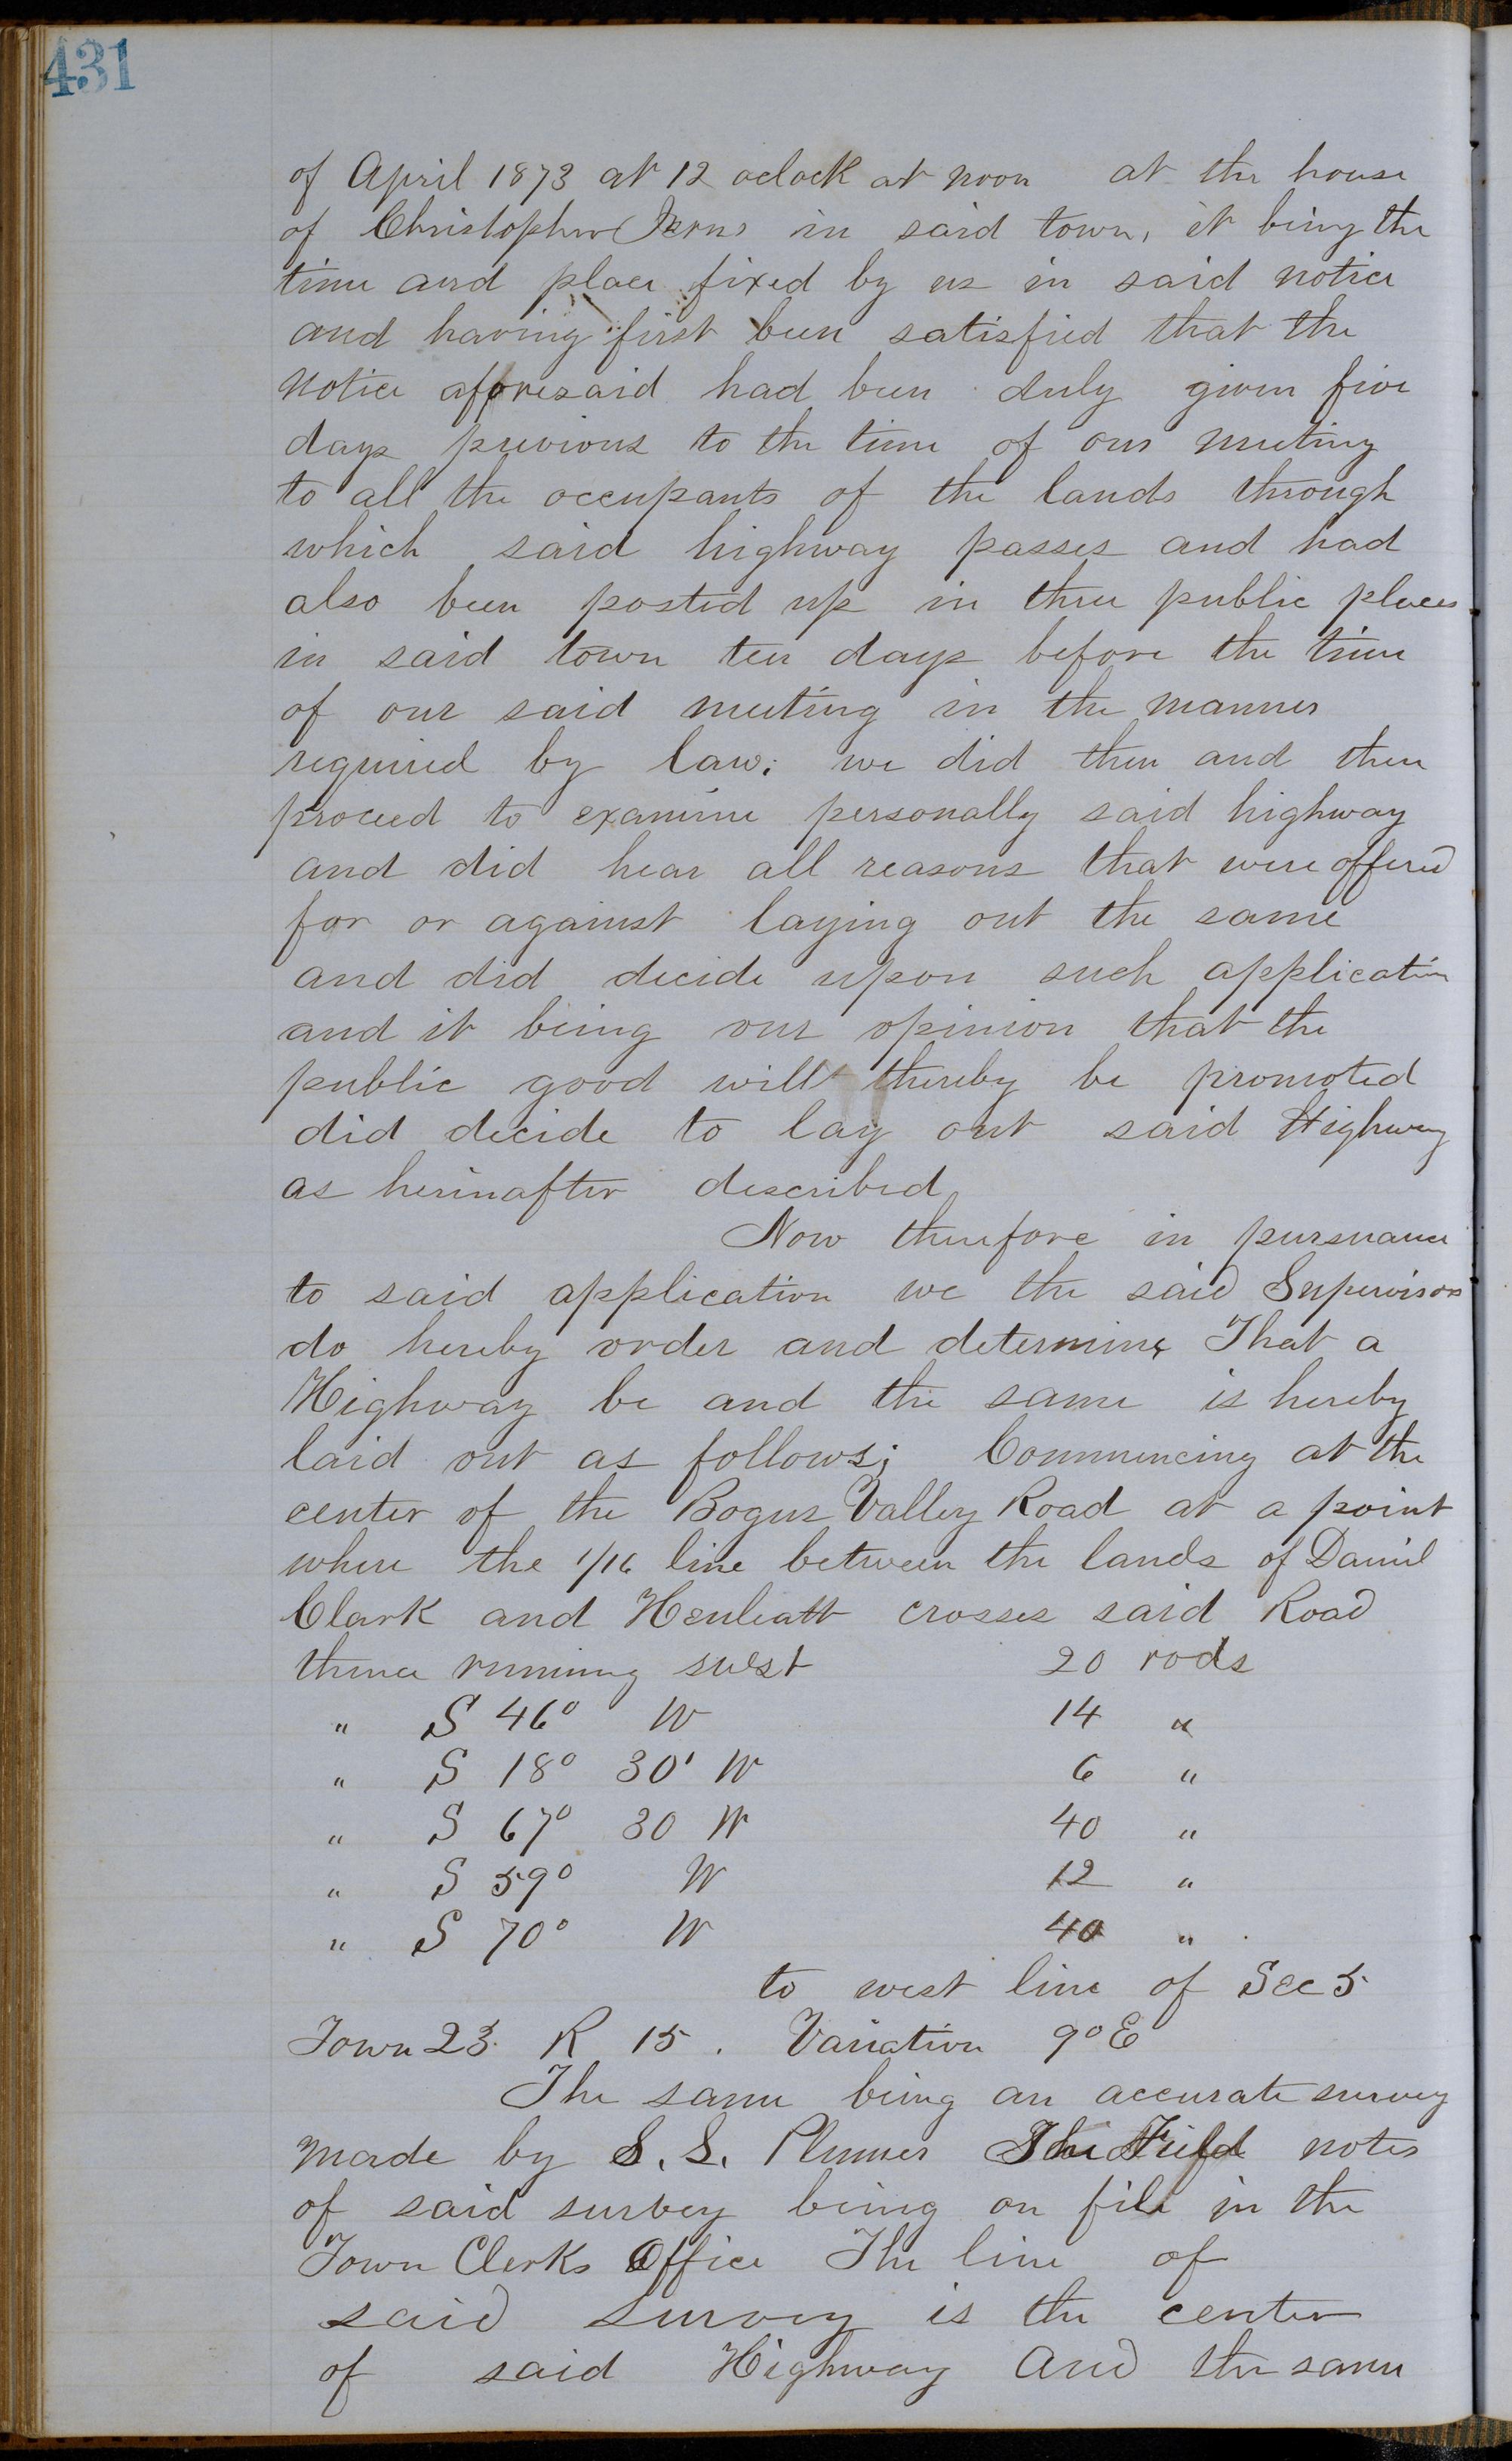 431
of April 1873 at 12 oclock at noon at the house
of Christopher in said town, it being the
time and place fixed by us in said notice
and having first been satisfied that the
notice aforesaid had been duly given five
days previous to the time of our meeting
to all the occupants of the lands through
which said highway passes and had
also been posted up in three public places
in said town ten days before the time
of our said meeting in the manner
required by law; we did then and there
proceed to examine personally said highway
and did hear all reasons that were offered
for or against laying out the same
and did decide upon such application
and it being our opinion that the
public good will thereby be promoted
did decide to lay out said Highway
as herinafter described
Now therefore in pursuance
to said application we the said Supervisors
do hereby order and determine That a
Highway be and the same is hereby
laid out as follows; Commencing at the
center of the Bogus Valley Road at a point
where the 1/16 line between the lands of Daniel
Clark and crosses said Road
thence running swest 20 rods
" S 46° W 14 "
" S 18° 30' W 6 "
" S 67° 30 W 40 "
" S 59° W 12 "
" S 70° W 40 "
to west line of Sec 5
Town 23 R 15. Variation 9° E
The same being an accurate survey
made by S. S. Plumer The Field notes
of said survey being on file in the
Town Clerks Office The line of
said survey is the center
of said Highway And the same